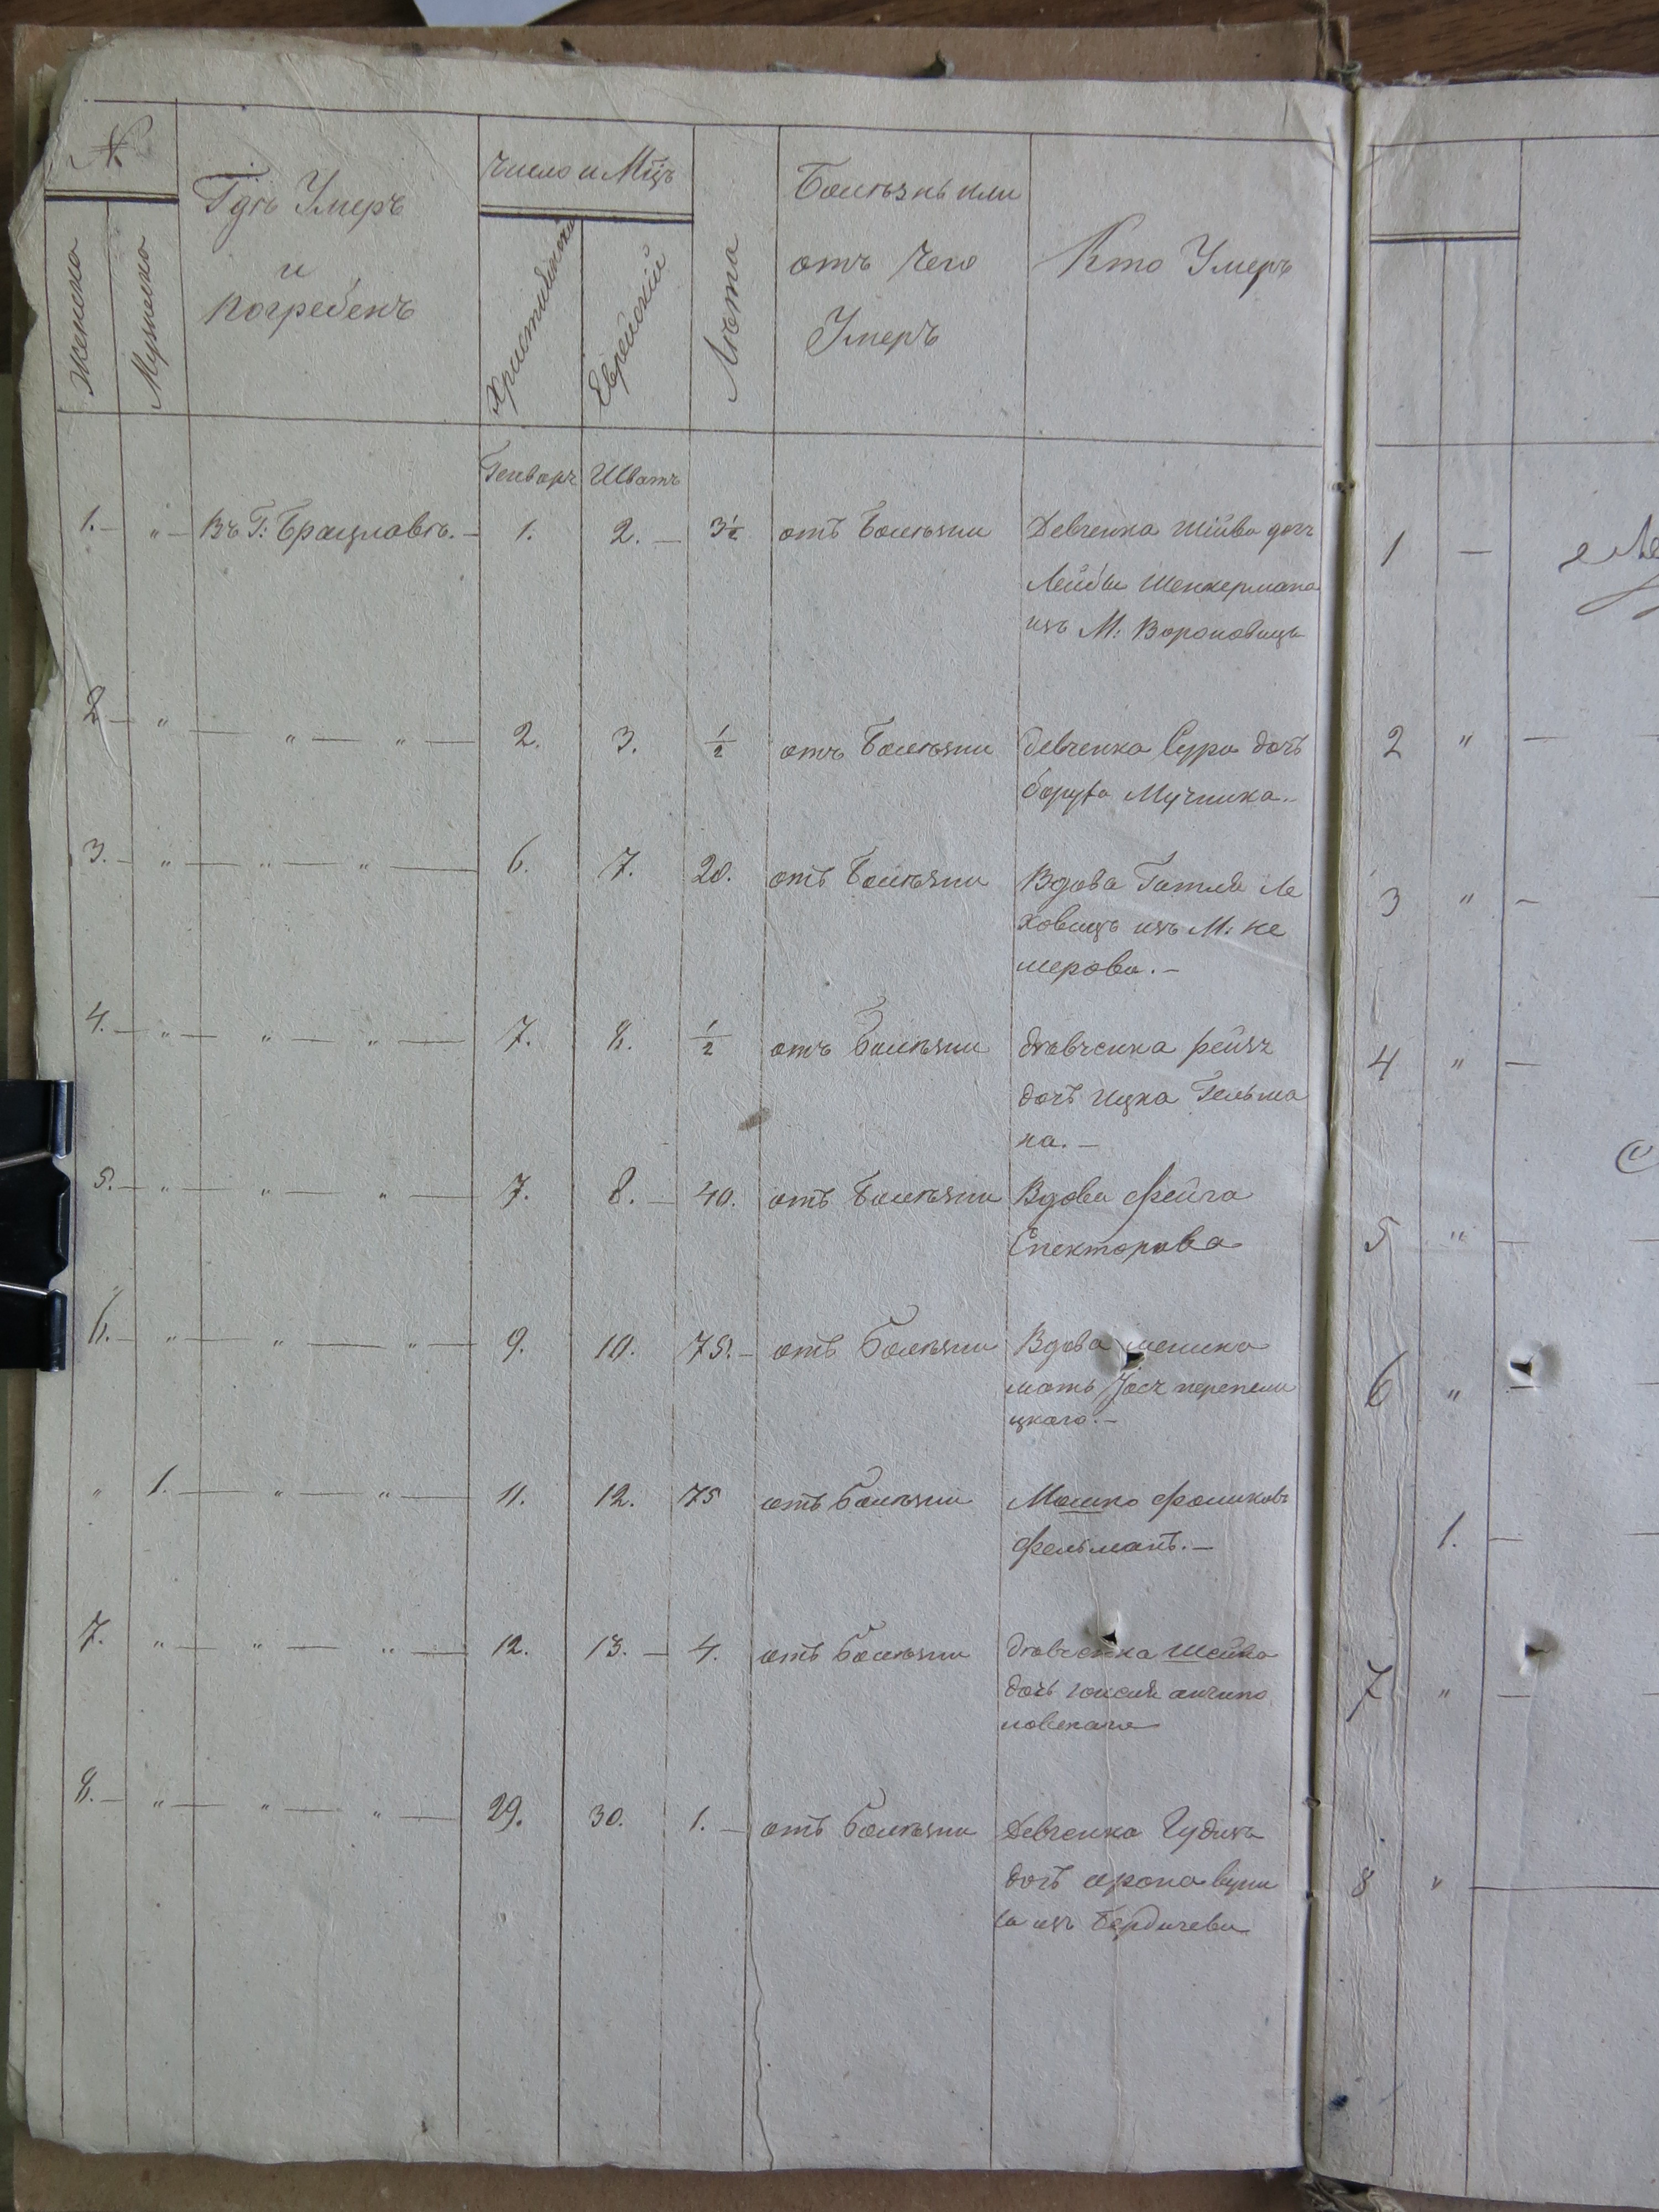 №
Женско
Мужеско
Гдѣ Умеръ
и
погребенъ
Число и Мцъ
Христианский
Еврейский
Лѣта
Болѣзнь или
отъ чего
Умеръ
Кто Умеръ
Генваръ Шватъ
1. — „ — Въ Г: Брацлавѣ. — 1. 2. — 3½ отъ болѣзни Девченка Шейва дочъ
Лейбы Шенкермана
изъ М: Вороновицъ
2 — „ — „ — „ — 2. 3. ½ отъ болѣзни девченка Сура дочъ
боруха Мучника. —
3. — „ — „ — „ — 6. 7. 20. отъ болѣзни Вдова Гитля Ле
ховицъ изъ М: Не
мерова. —
4. — „ — „ — „ — 7. 8. ½ отъ болѣзни дѣвченка рейзя
дочъ ицка Гельма
на. —
5. — „ — „ — „ — 7. 8. — 40. отъ болѣзни Вдова Фейга
Спекторова
6. — „ — „ — „ — 9. 10. 75. — отъ болѣзни Вдова
мать перепели
цкаго. —
„ 1. — „ — „ — 11. 12. 75 отъ болѣзни Мошко Фроиковъ
Фельманъ. —
7. „ — „ — „ — 12. 13. — 4. отъ болѣзни дѣвченка Шейва
дочъ
новскаго
8. — „ — „ — „ — 29. 30. 1. — отъ болѣзни Девченка
дочъ арона
изъ Бердичева
1 —
2 „ —
3 „ —
4 „ —
5 „ —
6 „ —
1. —
7 „ —
8 „ —